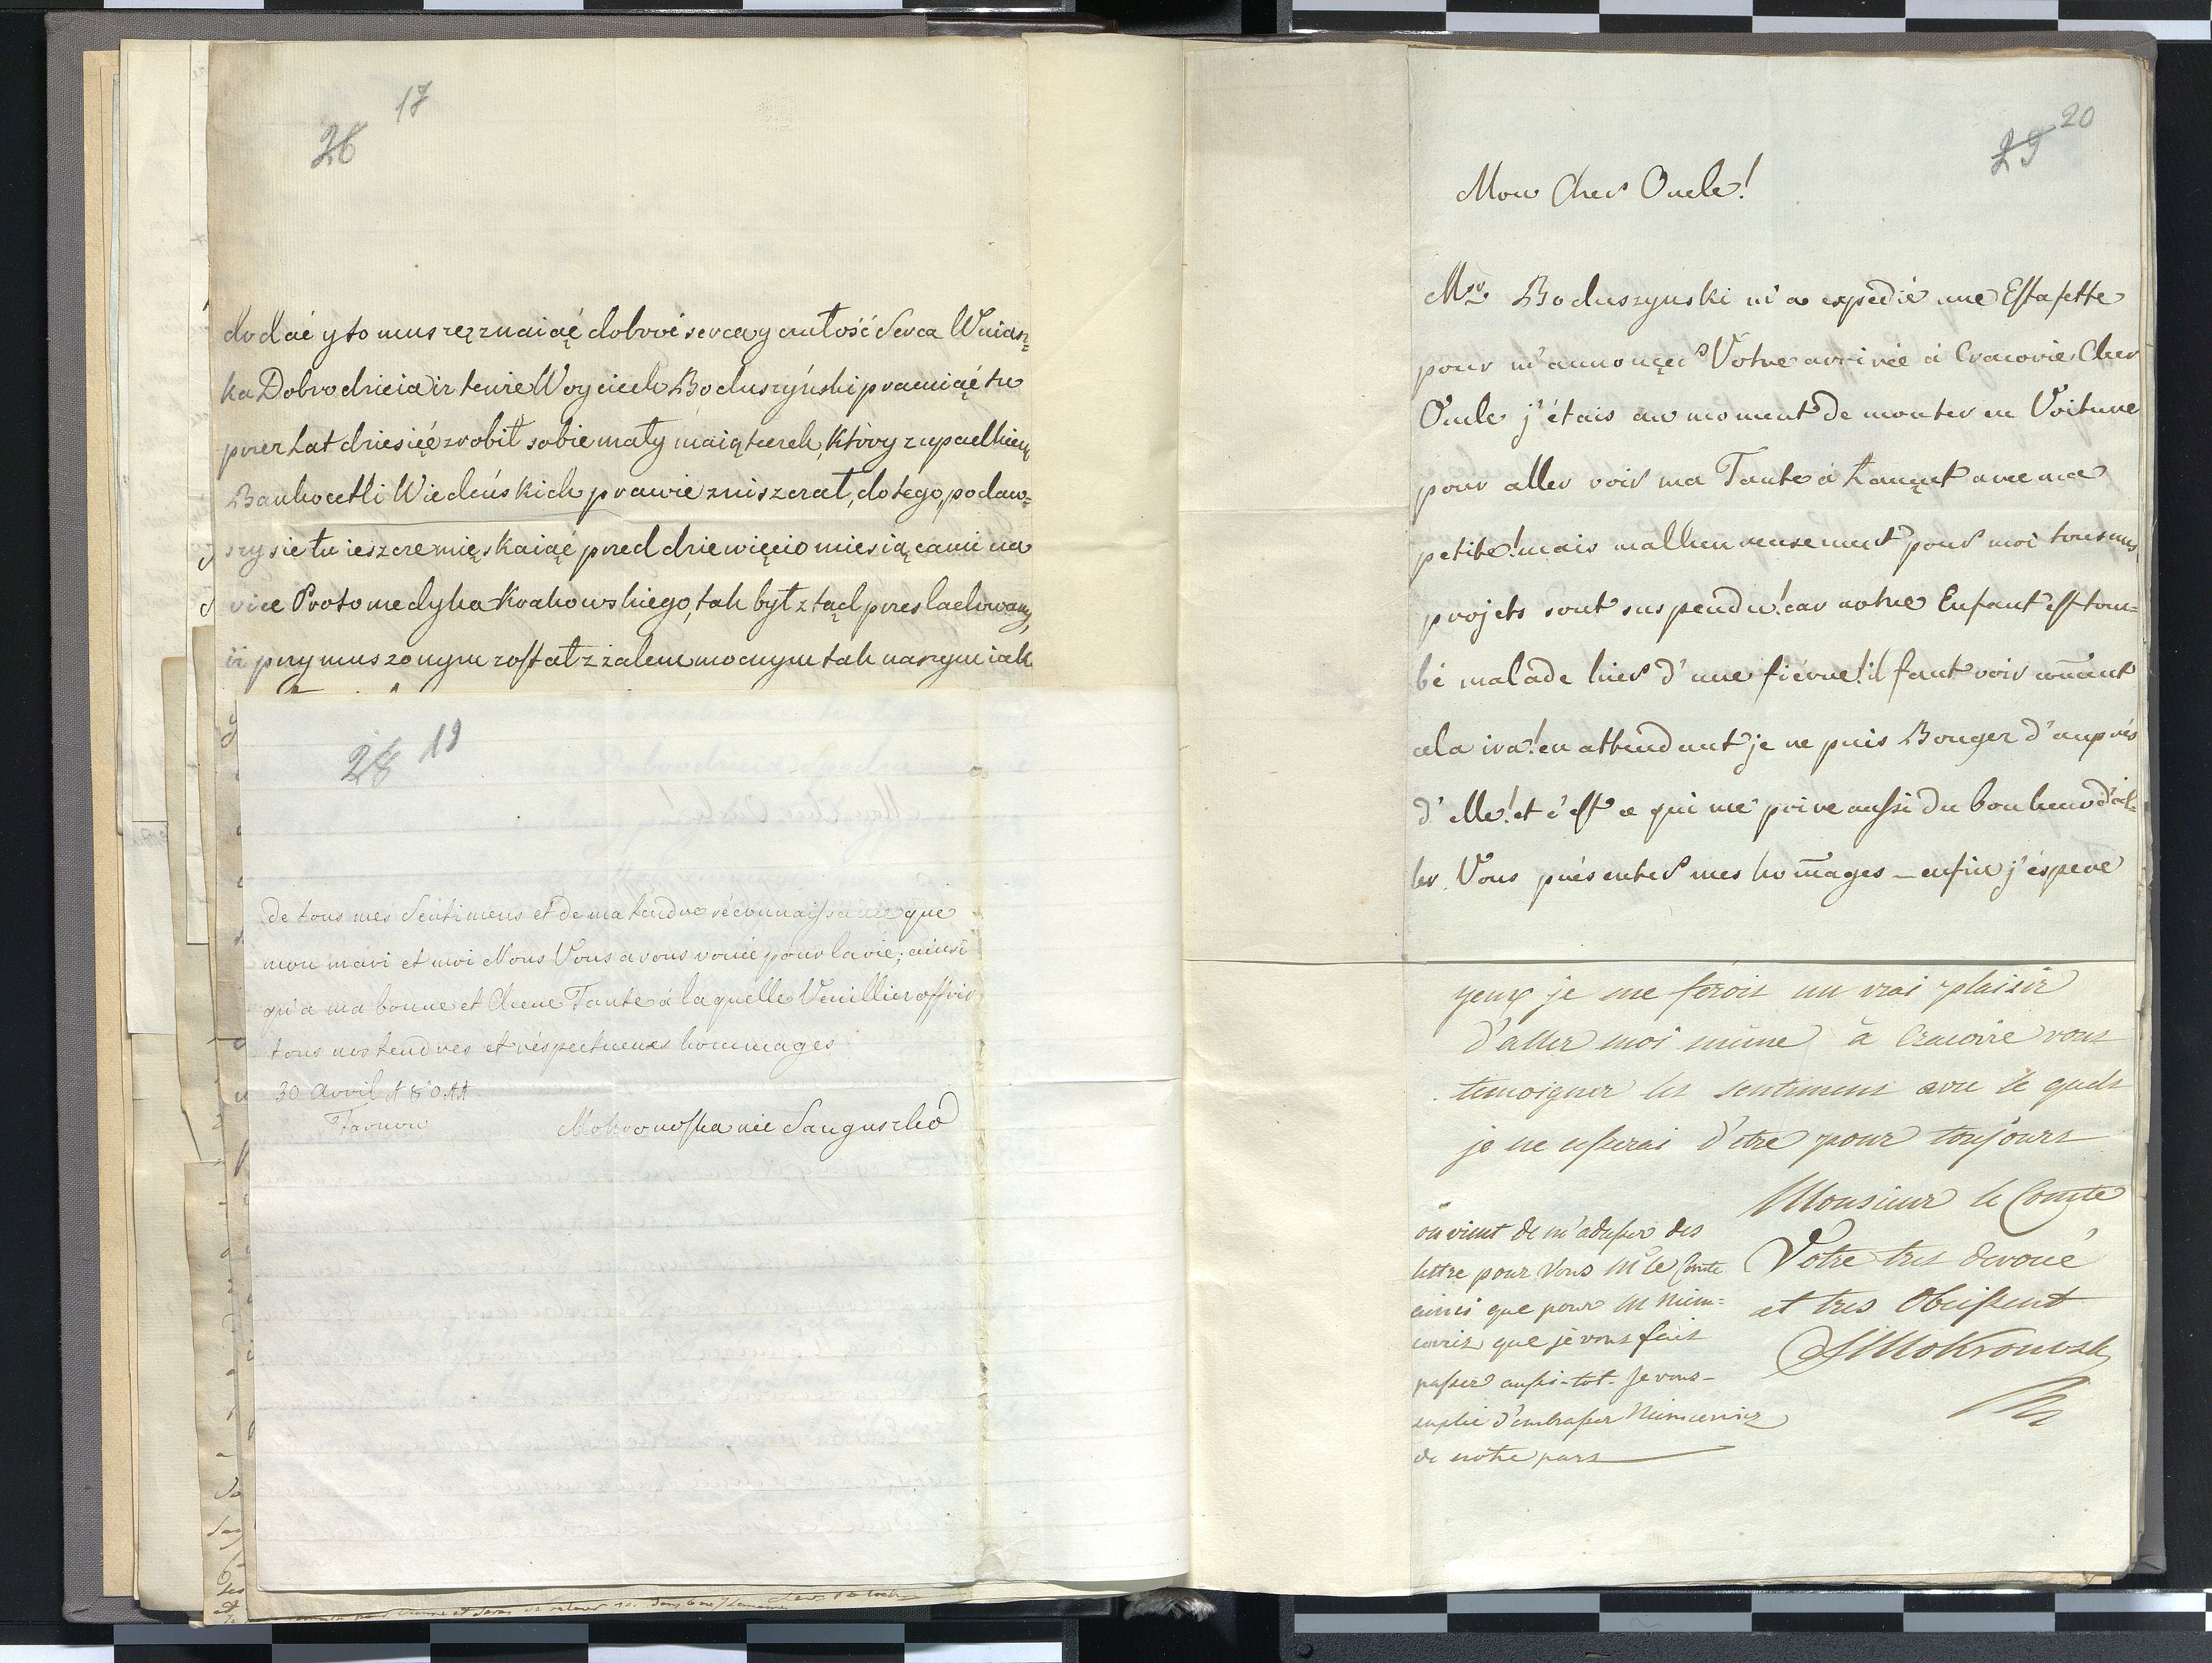 17
26
dodać y to muszę znaiąć dobroć serca y czułość Serca Wuiasz=
ka Dobrodzieia iz tenze Woyciech Boduszyński pracuiąć tu
przez Lat dziesięć zrobił sobie mały maiąteczek, który z upadkiem
Bankocetli Wiedeńskich prawie zniszczał, do tego, podaw=
szy sie tu ieszcze mięskaiąć przed dziewięcio miesiącami na
vice Protomedyka Krakowskiego, tak był z tąd przesladowany,
iż przymuszonym zostałz żalem mocnym tak naszym iak
28 19
de tous mes Sentimens et de ma tendre réconnaissance que
mon mari et moi Nous Vous avons vouée pour la vie; ainsi
qu'a ma bonne et Chere Tante à laquelle Veuilliez offrir
tous nos tendres et réspectueuxs hommages
30 Avril 1811
Tarnow Mokronoska née Sanguszko
29 20
Mon Cher Oncle!
Mr. Boduszynski m'a expedié une Estafette
pour m'annonçer Votre arrivée à Cracovie Cher
Oncle j'étais au moment de monter en Voiture
pour aller voir ma Tante à Łançut avec ma
petite! mais malheureusement pour moi tous mes
projets sont suspendu! car notre Enfant est tom=
bé malade hier d'une fiévre! il faut voir com̄ent
cela ira! en attendant je ne puis Bouger d'auprés
d'elle! et c'est ce qui me prive aussi du bonheur d'al=
ler Vous présenter mes hom̄ages – enfin j'éspere
yeux je me ferois un vrai plaisir
d'aller moi même à Cracovie vous
temoigner les sentiment avec le quels
je ne cesserai d'etre pour toujours
Monsieur le Comte
Votre tres devoué
et tres Obeissent
SMokronosk
on vient de m'adresser des
lettre pour Vous Mr le Comte
ainsi que pour M Niem=
cewiz que je vous fait
passer aussi-tot. Je vous
suplie d'embrasser Niemcewicz
de notre pars